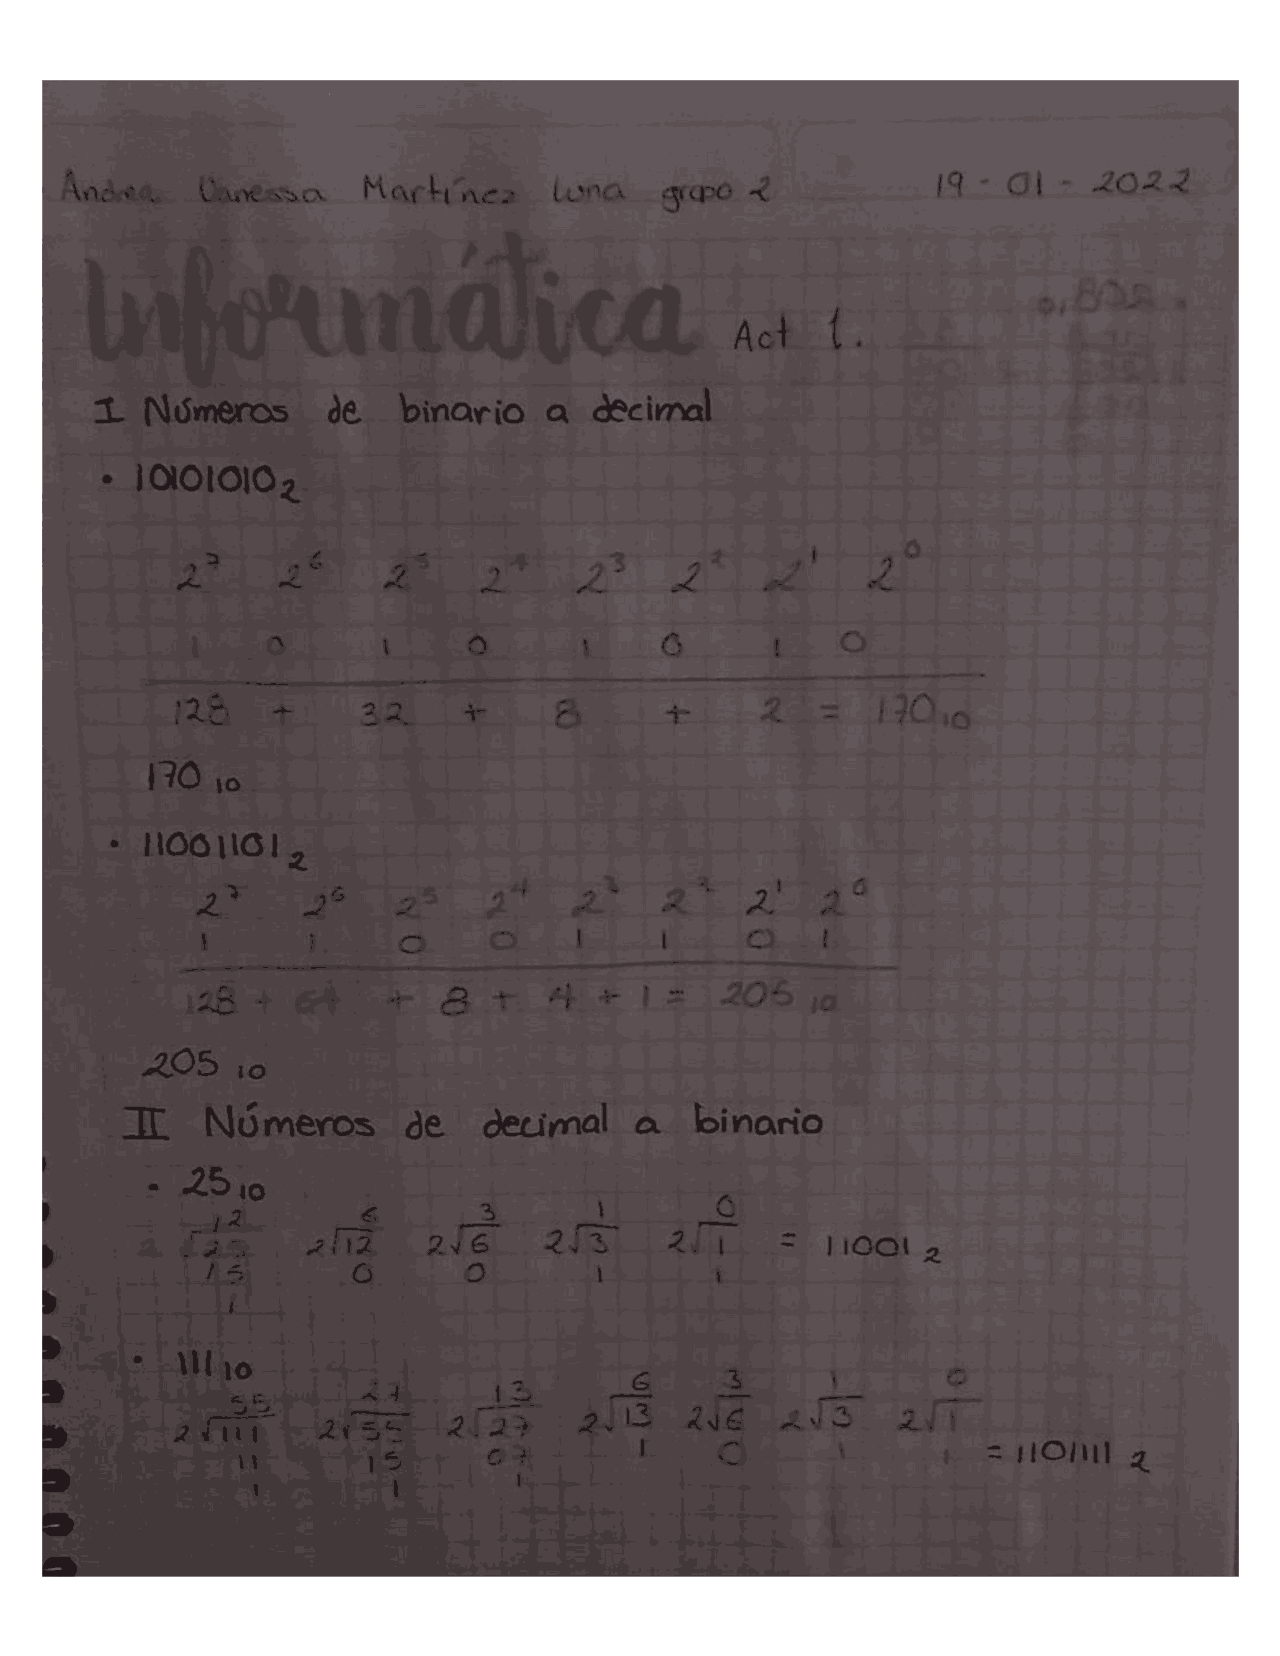 Andrea Vanessa Martínez Luna grupo 2 19-01-2022
Informática Act 1.
I Números de binario a decimal
• 10101010₂
2⁷ 2⁶ 2⁵ 2⁴ 2³ 2² 2¹ 2⁰
1 0 1 0 1 0 1 0
128 + 32 + 8 + 2 = 170₁₀
170₁₀
• 11001101₂
2⁷ 2⁶ 2⁵ 2⁴ 2³ 2² 2¹ 2⁰
1 1 0 0 1 1 0 1
128 + 64 + 8 + 4 + 1 = 205₁₀
205₁₀
II Números de decimal a binario
• 25₁₀
12 6 3 1 0
2√25 2√12 2√6 2√3 2√1 = 11001₂
15 0 0 1 1
1
• 111₁₀
55 27 13 6 3 1 0
2√111 2√55 2√27 2√13 2√6 2√3 2√1
11 15 07 1 0 1 1 = 1101111₂
1 1 1